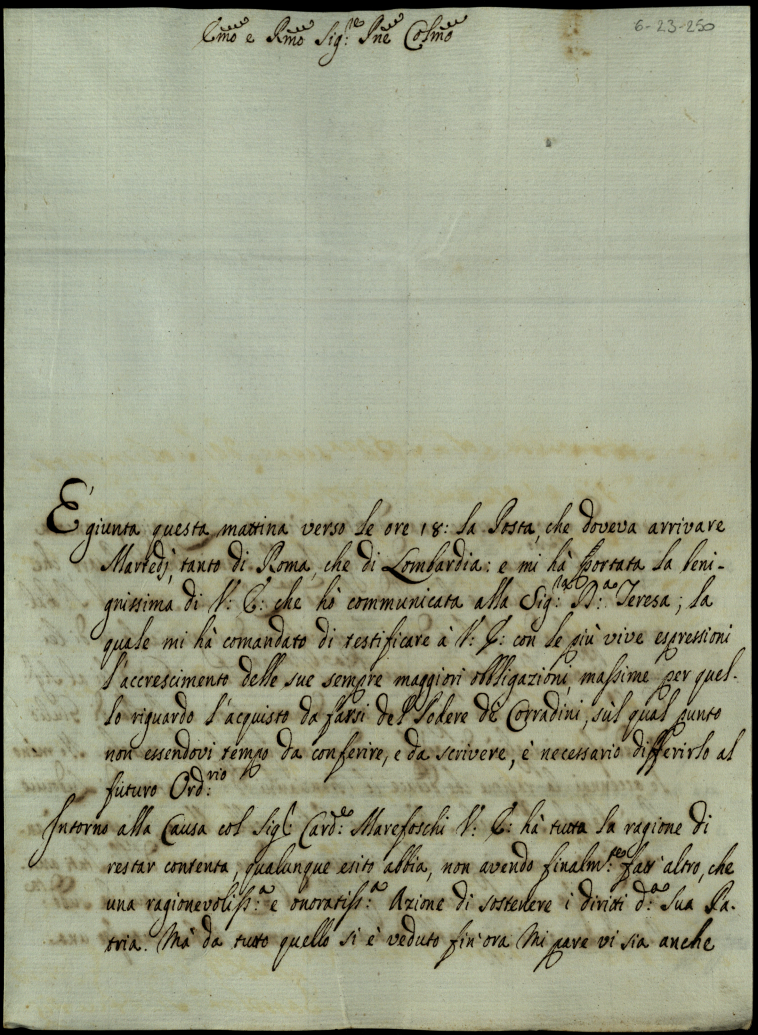 Em̃o e Rm̃o Sig:re Pne Colm̃o
6-23-250
È giunta questa mattina verso le ore 18: la Posta, che doveva arrivare
Martedj, tanto di Roma, che di Lombardia: e mi hà portata la beni-
gnissima di V: E: che hò communicata alla Sig:ra D:a Teresa; la
quale mi hà comandato di testificare à V: E: con le più vive espressioni
l'accrescimento delle sue sempre maggiori obbligazioni, massime per quel-
lo riguardo l'acquisto da farsi del Podere de Corradini, sùl qual punto
non essendovi tempo da conferire, e da scrivere, è necessario differirlo al
futuro Ord:rio
Intorno alla Causa col Sig:r Card:e Marefoschi V: E: hà tutta la ragione di
restar contenta, qualunque esito abbia, non avendo finalm:te fatt'altro, che
una ragionevoliss:a e onoratiss:a Azione di sostenere i diritti d:a Sua Pa-
tria. Mà da tutto quello si è veduto fin'ora Mi pare vi sia anche